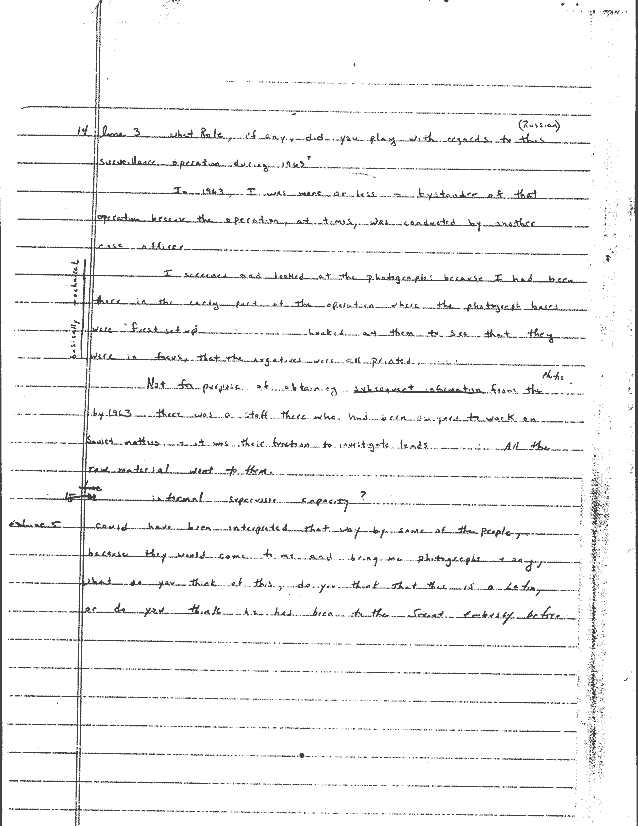 (Russian)
14 line 3 what Role, if any, did you play with regards to this
surveillance operation during 1963?
In 1963, I was more or less a bystander of that
operation because the operation, at times, was conducted by another
case officer
I screened and looked at the photographs because I had been
there in the early part of the operation where the photograph bases
basically technical
were first set up ........ looked at them to see that they
were in focus, that the negatives were all printed ......
Photos
Not for purpose of obtaining subsequent information from the
by 1963 there was a staff there who had been to work on
Soviet matters + it was their function to investigate leads ...... All the
raw material went to them.
15 informal supervisor capacity?
line 5 could have been interpreted that way by some of the people,
because they would come to me and bring me photographs + say,
what do you think of this, do you think that this is a Latin,
or do you think he has been to the Soviet embassy before